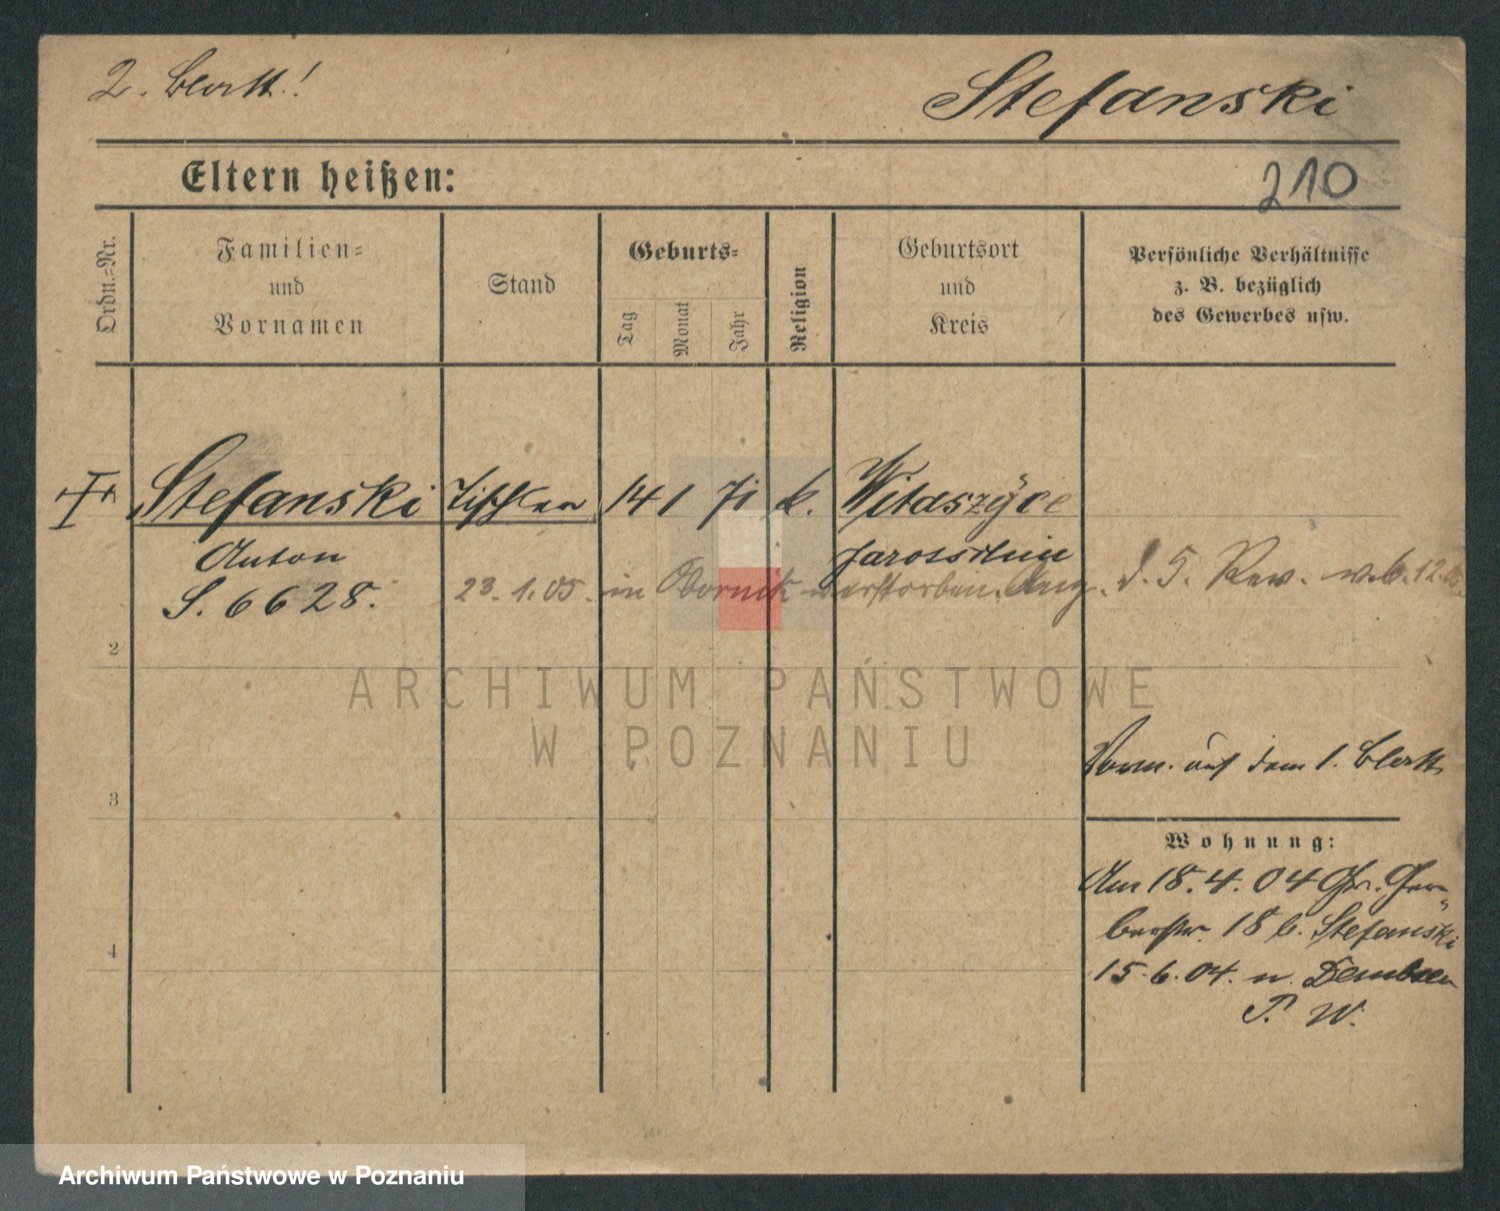 2. Blatt!
Stefanski
Eltern heißen:
210
Ordn.=Nr.
Familien=
und
Vornamen
Stand
Geburts=
Tag
Monat
Jahr
Religion
Geburtsort
und
Kreis
Persönliche Verhältnisse
z. B. bezüglich
des Gewerbes usw.
Stefanski Tischler 14 1 71 k. Witaszyce
Anton Jarotschin
S. 6628.
23.1.05. in Obornik verstorben. Ang. d. 5. Rev. v. 6.12.05.
2
ARCHIWUM PAŃSTWOWE
W POZNANIU
Verm. auf dem 1. Blatt
3
Wohnung:
Am 18.4.04 Gr. Ger=
berstr. 18 b. Stefanski
15.6.04. n. Dembsen
P. W.
4
Archiwum Państwowe w Poznaniu